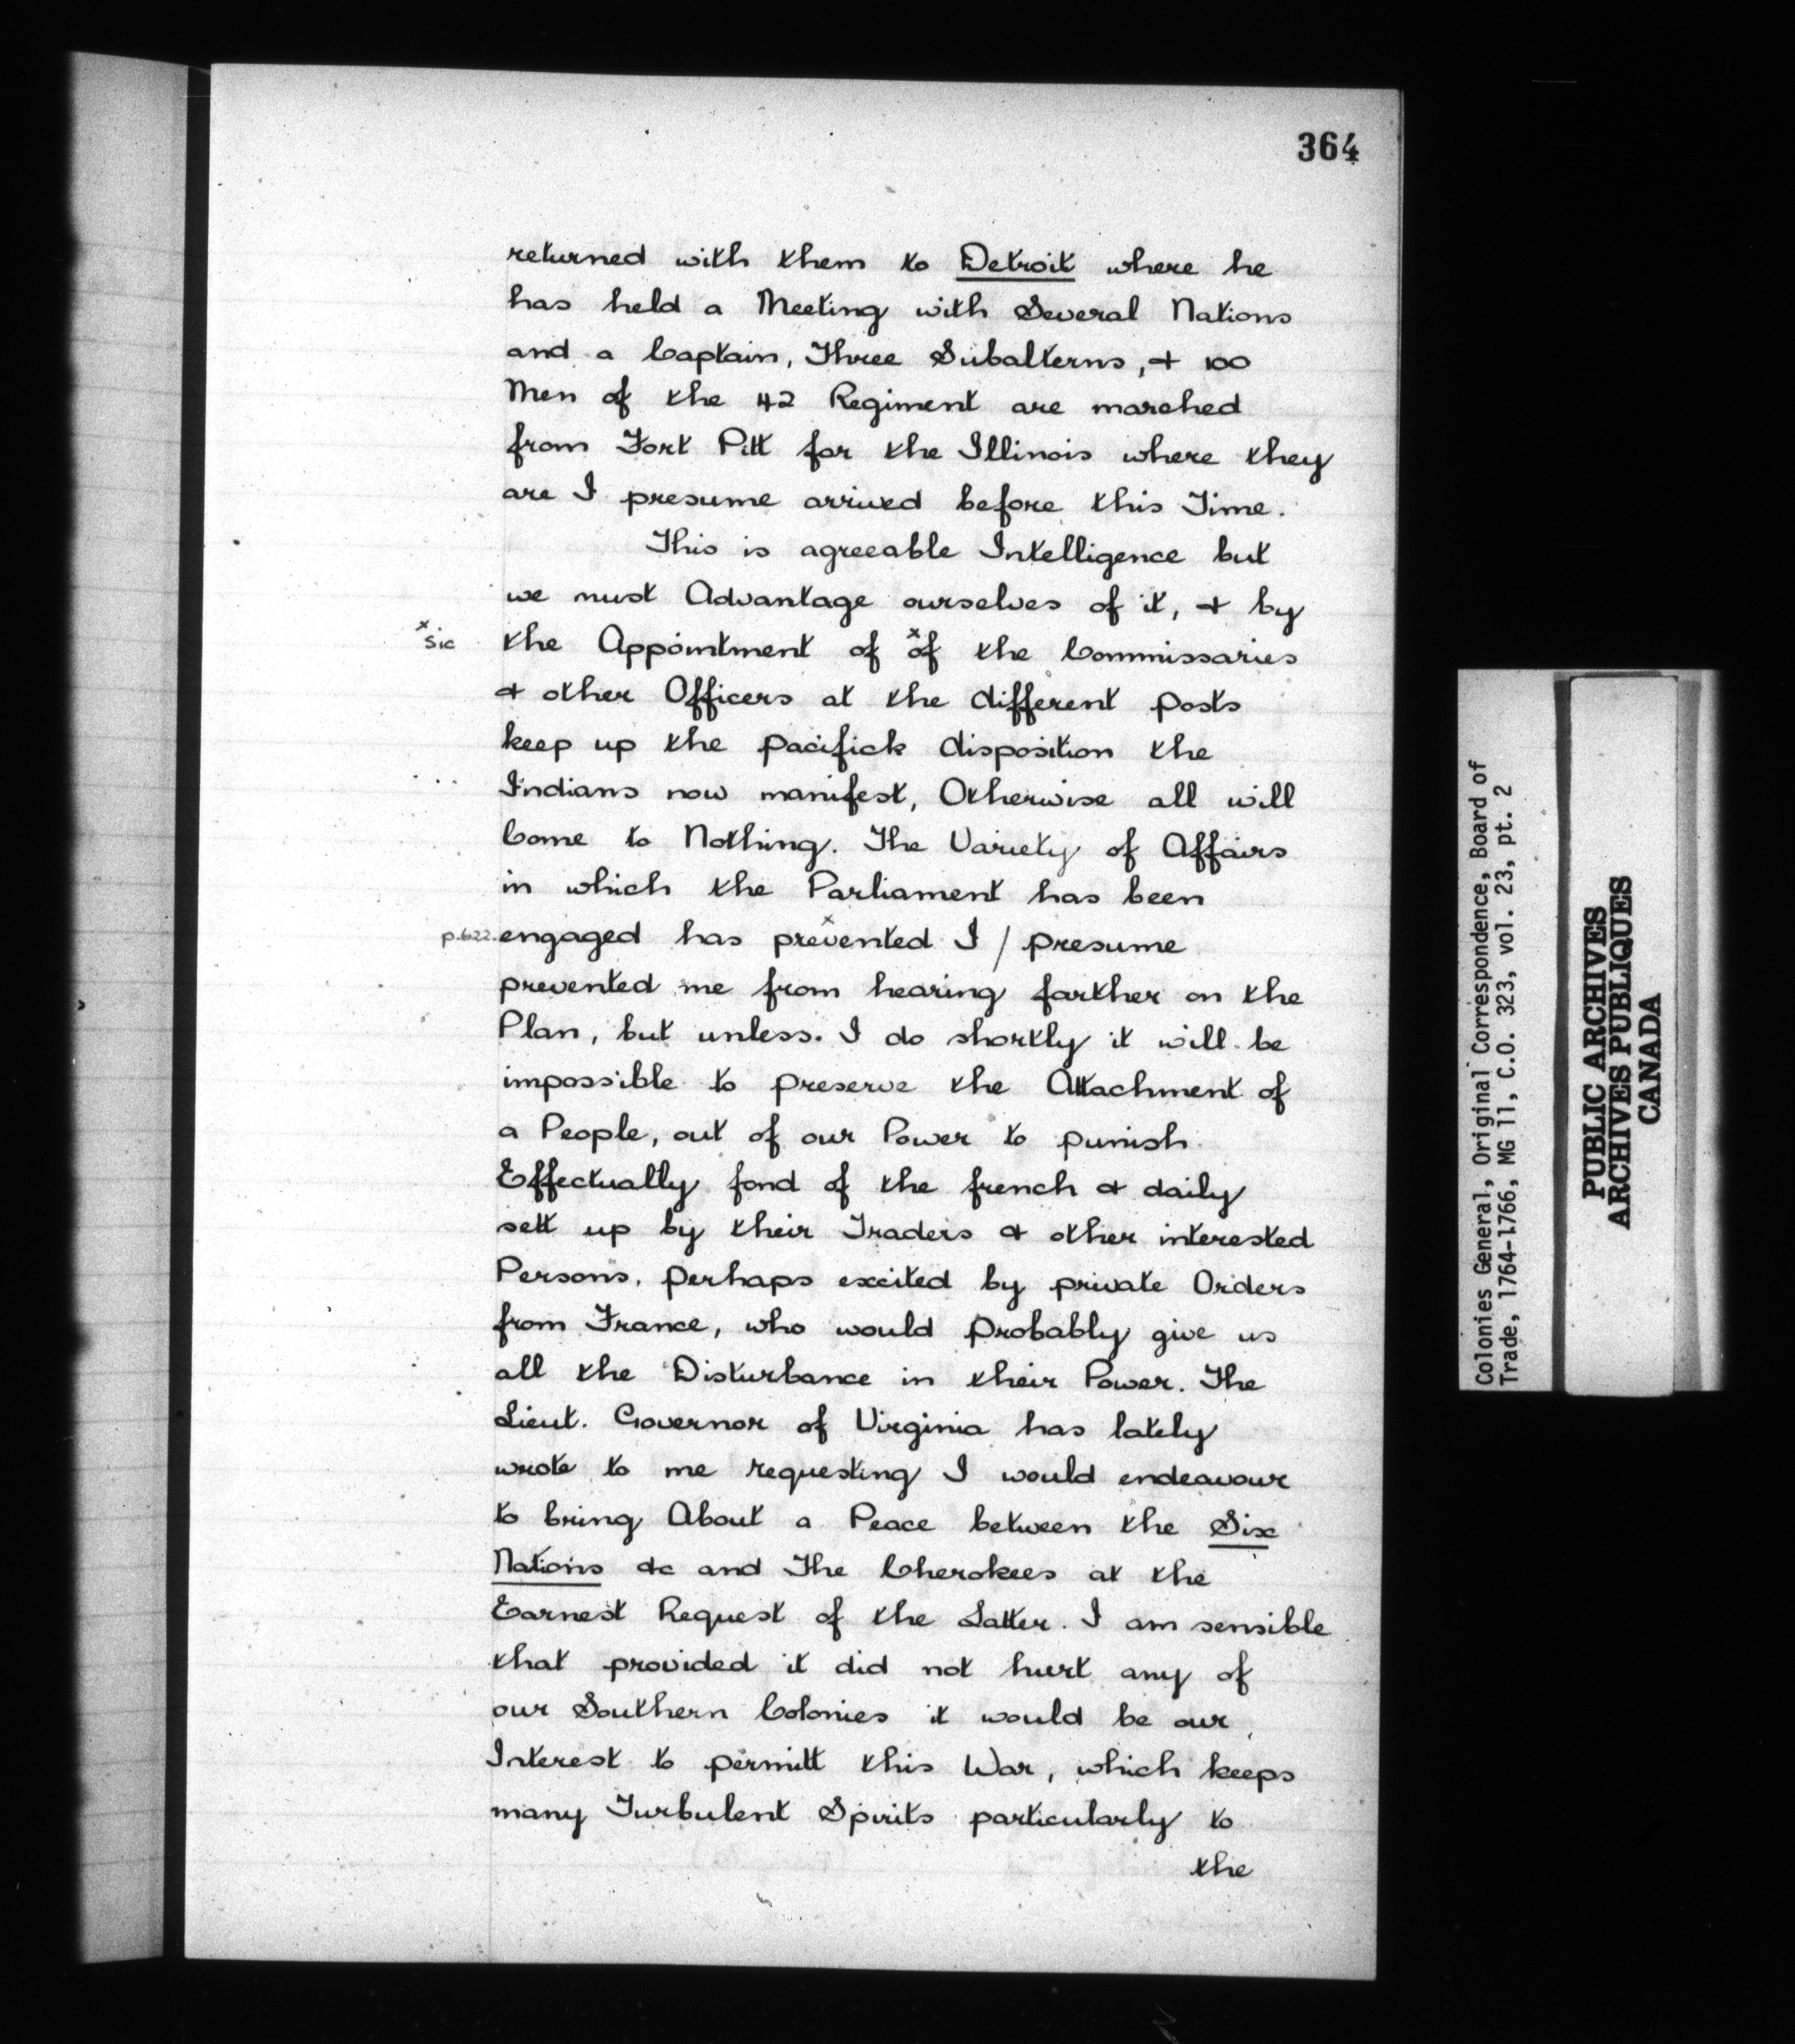 364
returned with them to Detroit where he
has held a Meeting with Several Nations
and a Captain, Three Subalterns, & 100
Men of the 42 Regiment are marched
from Fort Pitt for the Illinois where they
are I presume arrived before this Time.
This is agreeable Intelligence but
we must Advantage ourselves of it, & by
x sic the Appointment of x of the Commissaries
& other Officers at the different posts
keep up the pacifick disposition the
Indians now manifest, Otherwise all will
Come to Nothing. The Variety of Affairs
in which the Parliament has been
p.622. engaged has prevented x I / presume
prevented me from hearing farther on the
Plan, but unless. I do shortly it will be
impossible to preserve the Attachment of
a People, out of our Power to punish
Effectually fond of the french & daily
sett up by their Traders & other interested
Persons, perhaps excited by private Orders
from France, who would probably give us
all the Disturbance in their Power. The
Lieut. Governor of Virginia has lately
wrote to me requesting I would endeavour
to bring About a Peace between the Six
Nations &c and The Cherokees at the
Earnest Request of the Latter. I am sensible
that provided it did not hurt any of
our Southern Colonies it would be our
Interest to permitt this War, which keeps
many Turbulent Spirits particularly to
the
Colonies General, Original Correspondence, Board of
Trade, 1764-1766, MG 11, C.O. 323, vol. 23, pt. 2
PUBLIC ARCHIVES
ARCHIVES PUBLIQUES
CANADA